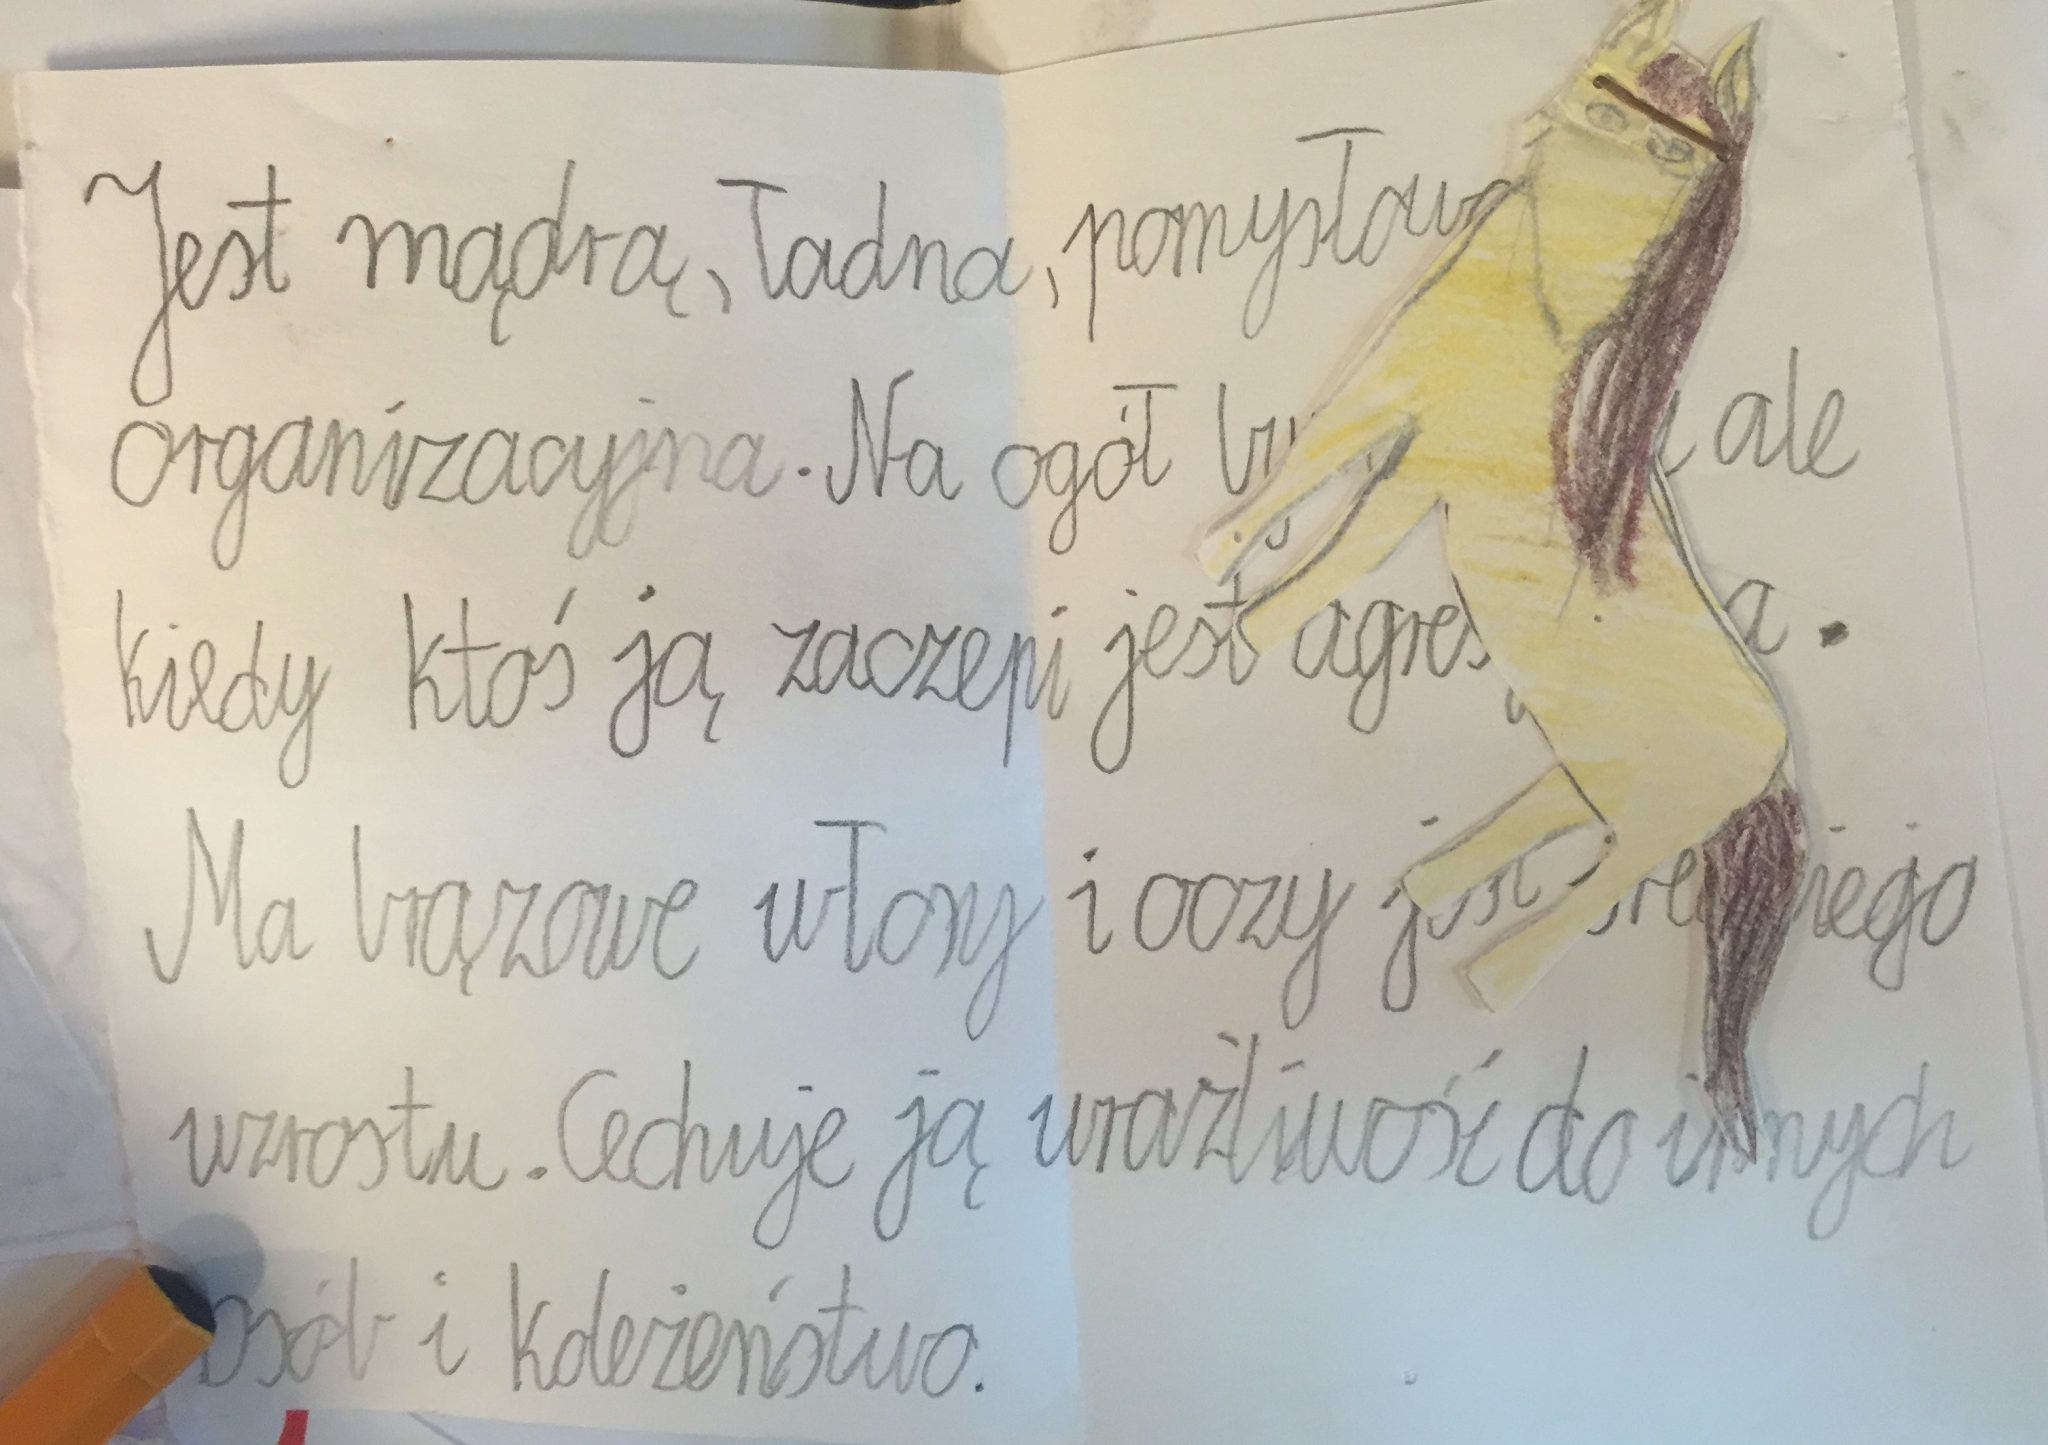 Jest mądrą, ładna, pomysłowa
organizacyjna. Na ogół ale
kiedy ktoś ją zaczepi jest agresywna.
Ma brązowe włosy i oczy jest średniego
wzrostu. Cechuje ją wrażliwość do innych
osób i koleżeństwo.